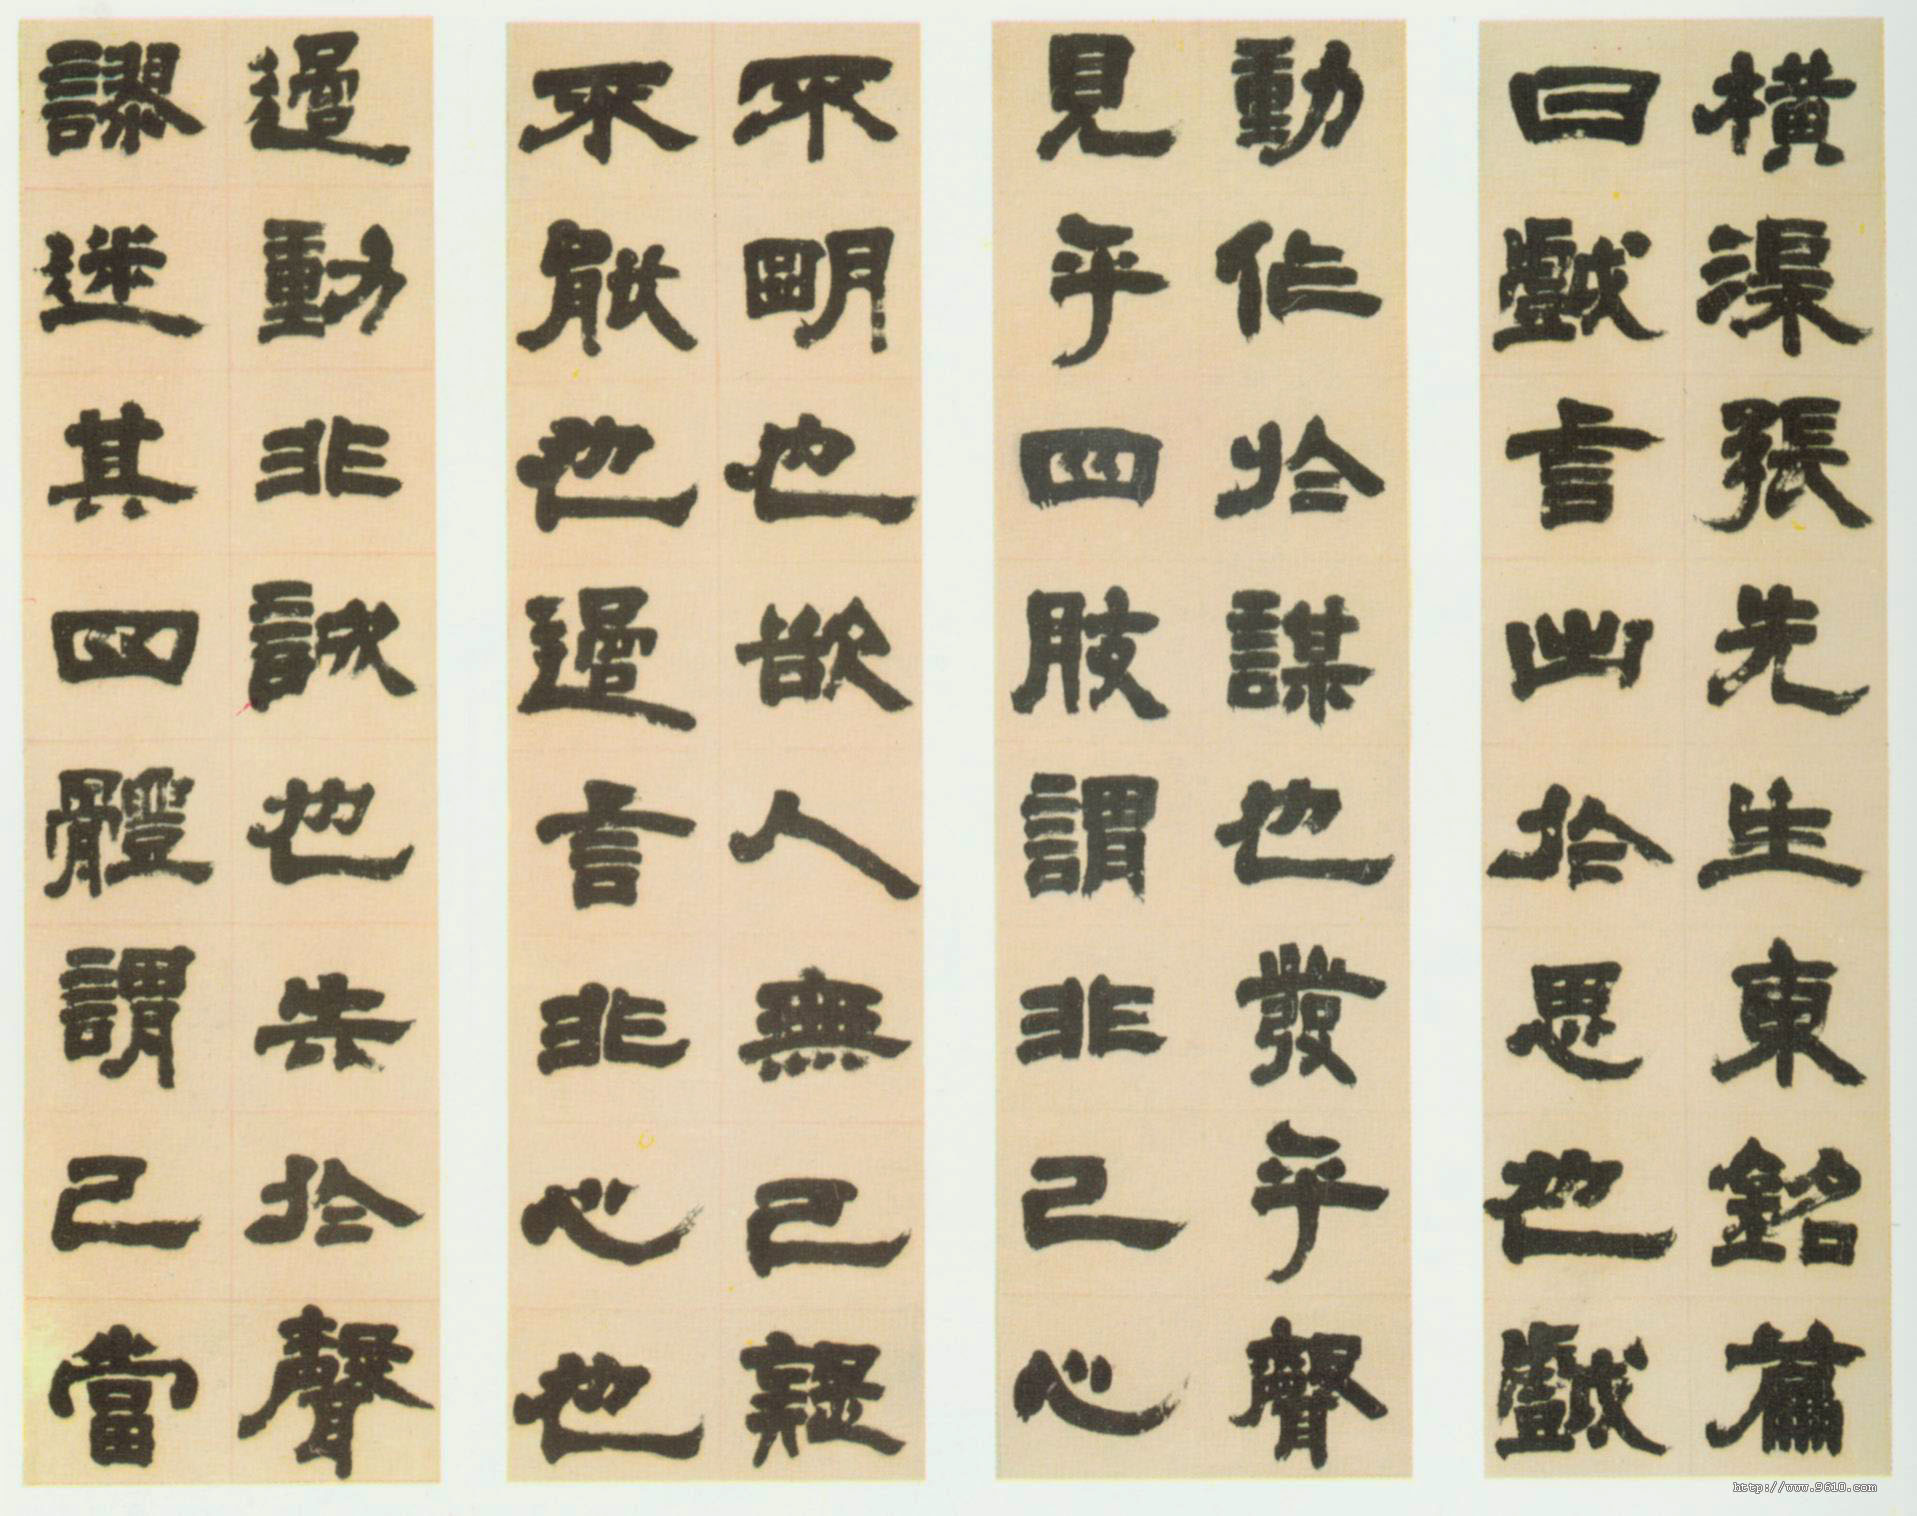 橫渠張先生東銘篇
曰戲言出於思也戲
動作於謀也發乎聲
見乎四肢謂非己心
不明也欲人無己疑
不能也過言非心也
過動非誠也失於聲
謬迷其四體謂己當
http://www.9610.com